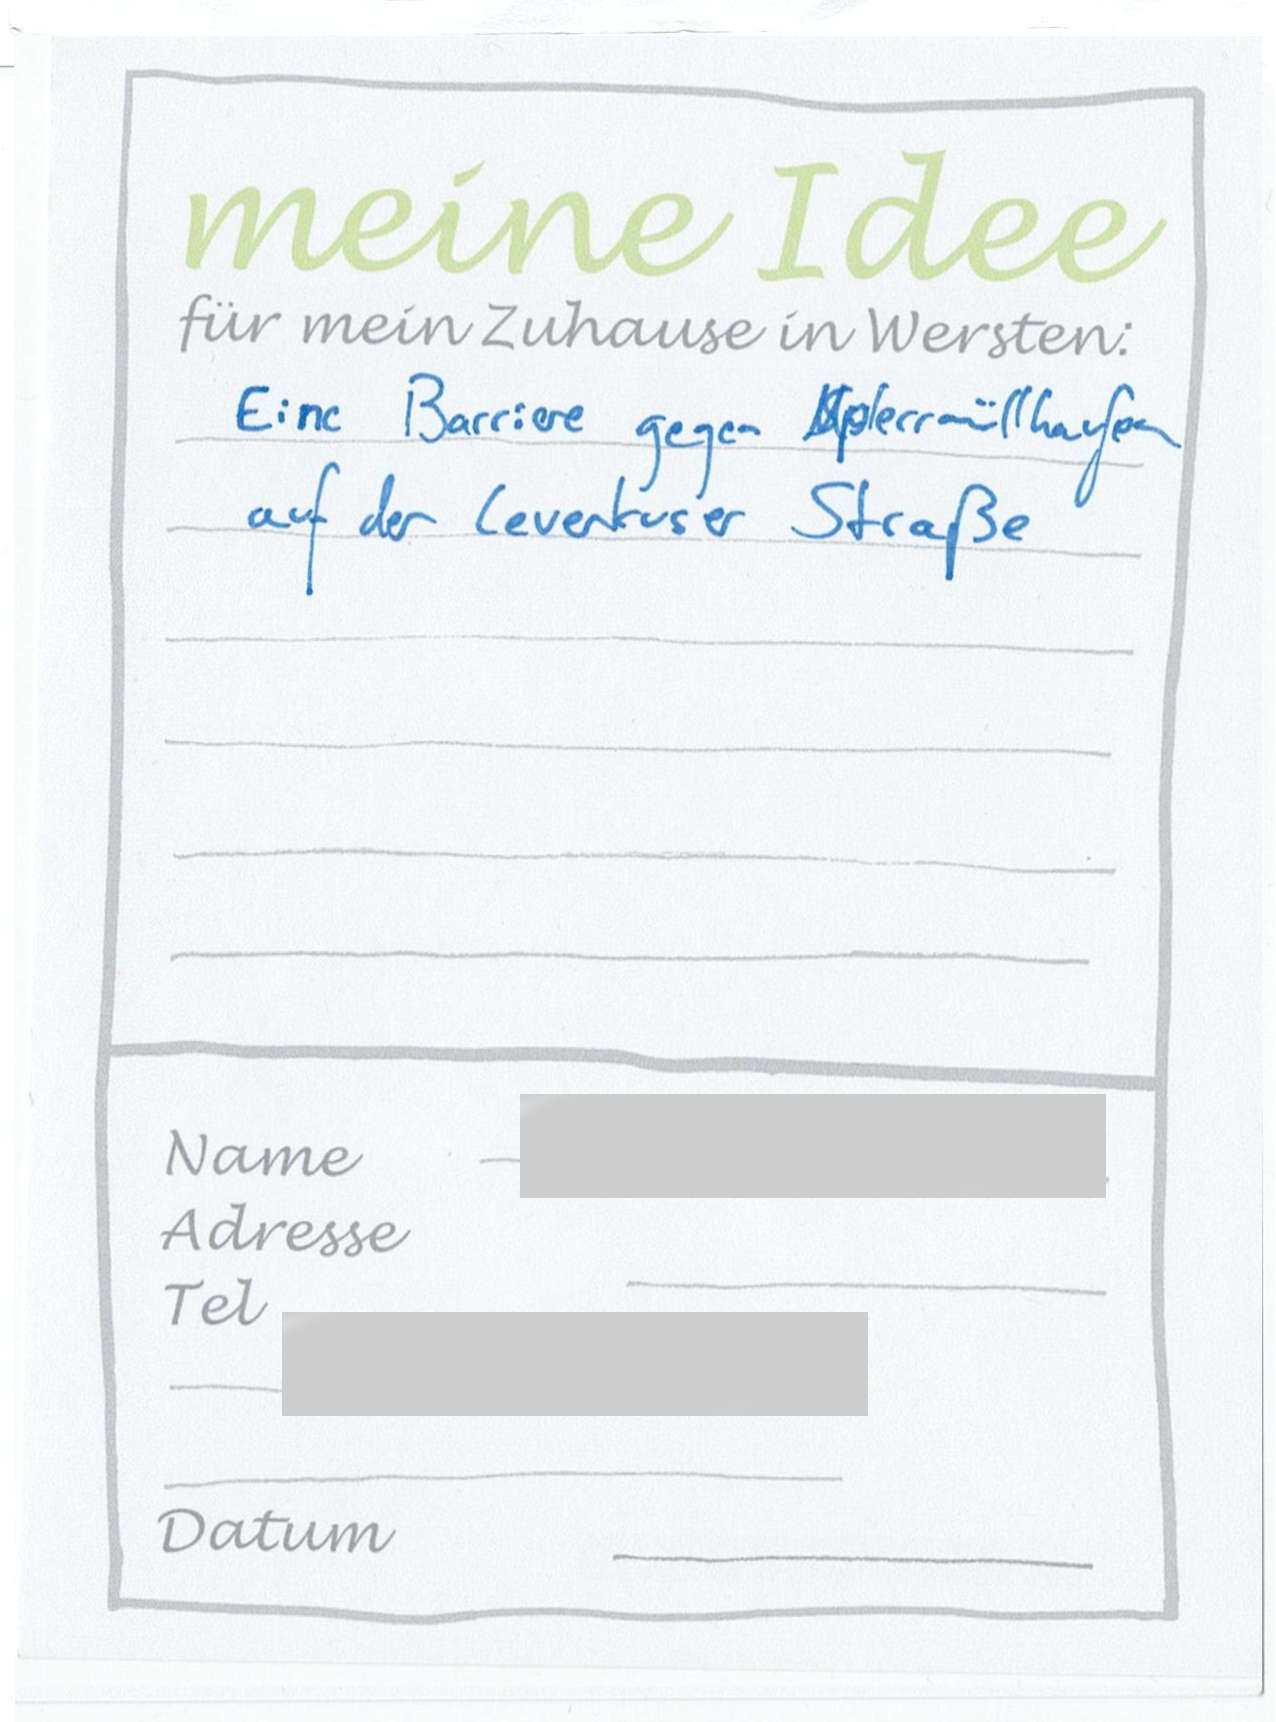 meine Idee
für mein Zuhause in Wersten:
Eine Barriere gegen Sperrmüllhaufen
auf der Leverkuser Straße
Name
Adresse
Tel
Datum